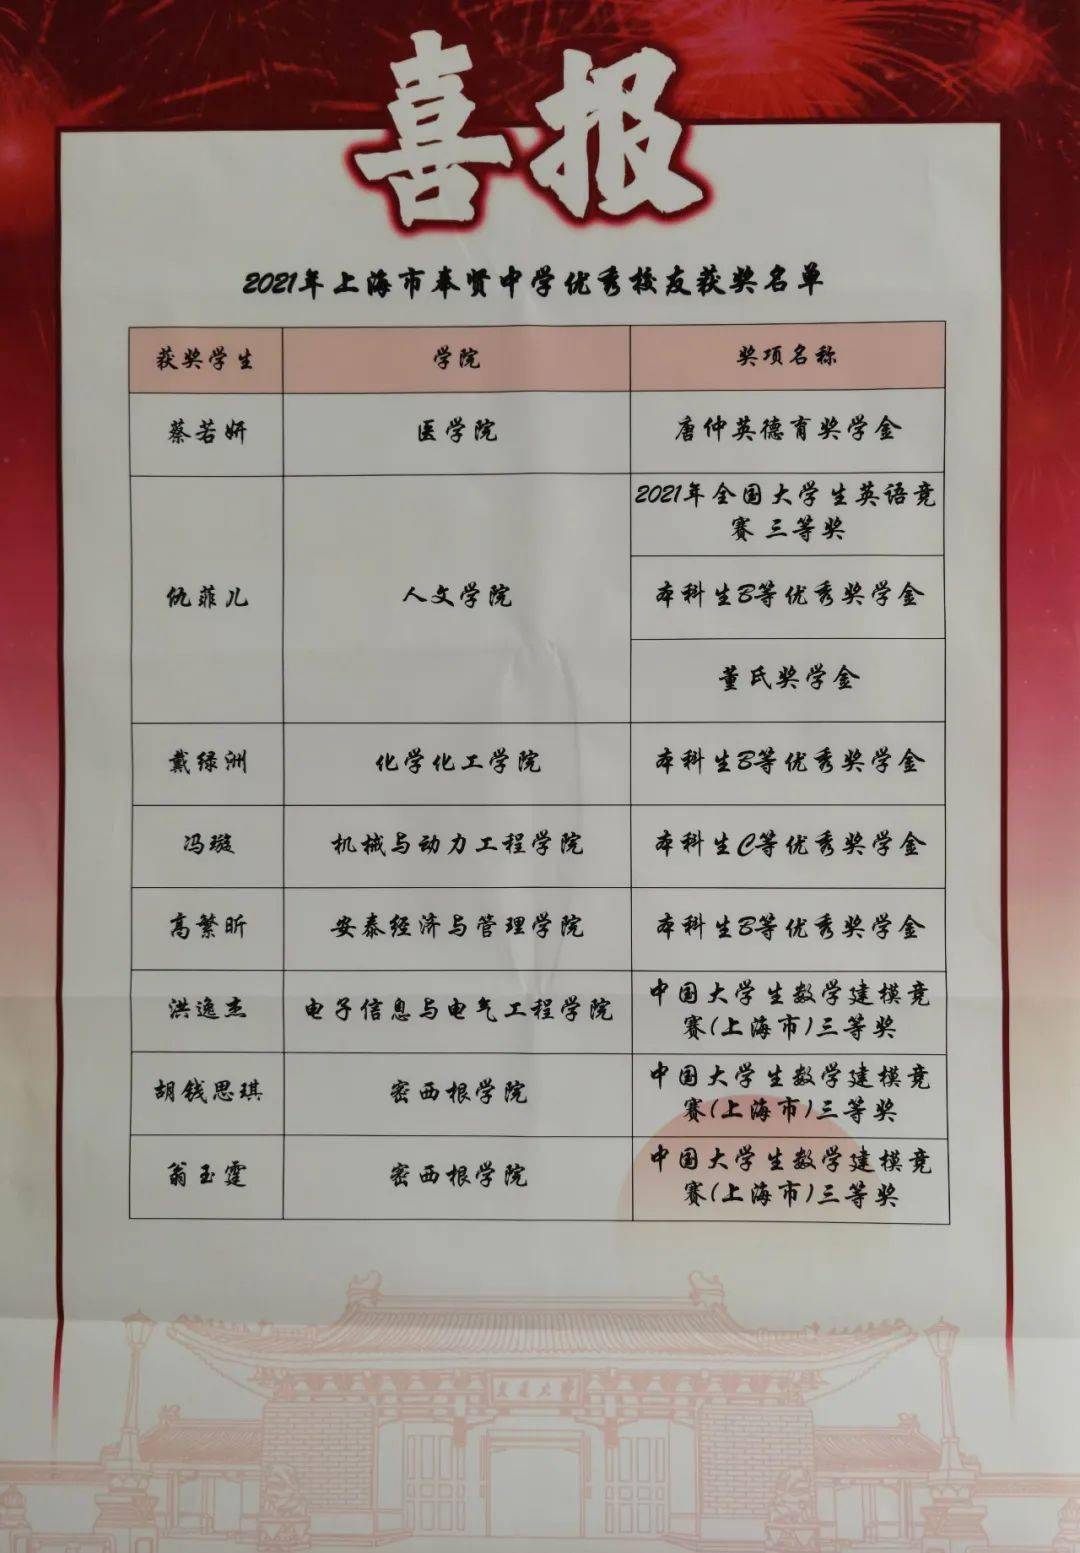 喜报
2021年上海市奉贤中学优秀校友获奖名单
获奖学生 学院 奖项名称
蔡若妍 医学院 唐仲英德育奖学金
仇菲儿 人文学院
2021年全国大学生英语竞
赛 三等奖
本科生B等优秀奖学金
董氏奖学金
戴绿洲 化学化工学院 本科生B等优秀奖学金
冯璇 机械与动力工程学院 本科生C等优秀奖学金
高繁昕 安泰经济与管理学院 本科生B等优秀奖学金
洪逸杰 电子信息与电气工程学院
中国大学生数学建模竞
赛(上海市)三等奖
胡钱思琪 密西根学院
中国大学生数学建模竞
赛(上海市)三等奖
翁玉霆 密西根学院
中国大学生数学建模竞
赛(上海市)三等奖